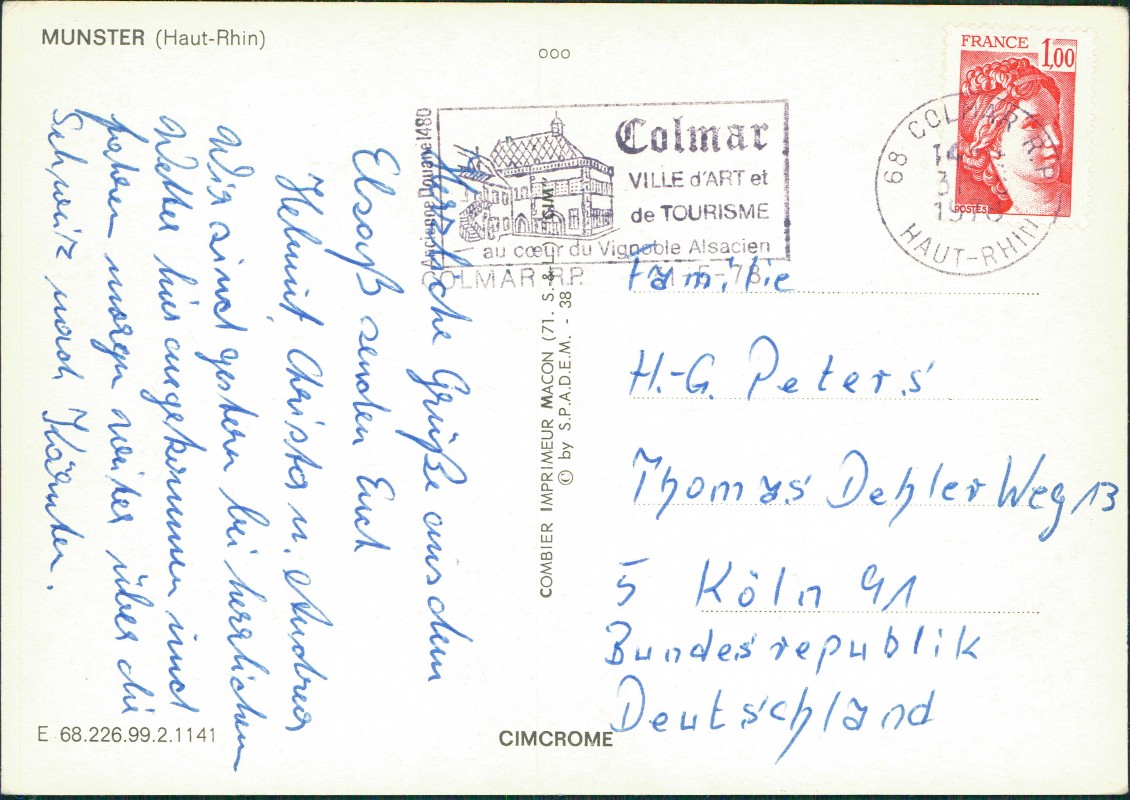 MUNSTER (Haut-Rhin)
ooo
FRANCE 1,00
POSTES
68 COLMAR R.P.
14
3
HAUT-RHIN
Ancienne Douane 1480
Colmar
VILLE d'ART et
de TOURISME
au cœur du Vignoble Alsacien
COLMAR R.P.
-5-78
Herzliche Grüße aus dem
Elsaß senden Euch
Helmut, Christa u. Andrea
Wir sind gestern bei herrlichem
Wetter hier angekommen und
fahren morgen weiter über die
Schweiz nach Kärnten.
COMBIER IMPRIMEUR MACON (71. S.-&-L.)
© by S.P.A.D.E.M. - 38
Familie
H.-G. Peters
Thomas Dehler Weg 13
5 Köln 91
Bundesrepublik
Deutschland
E 68.226.99.2.1141
CIMCROME